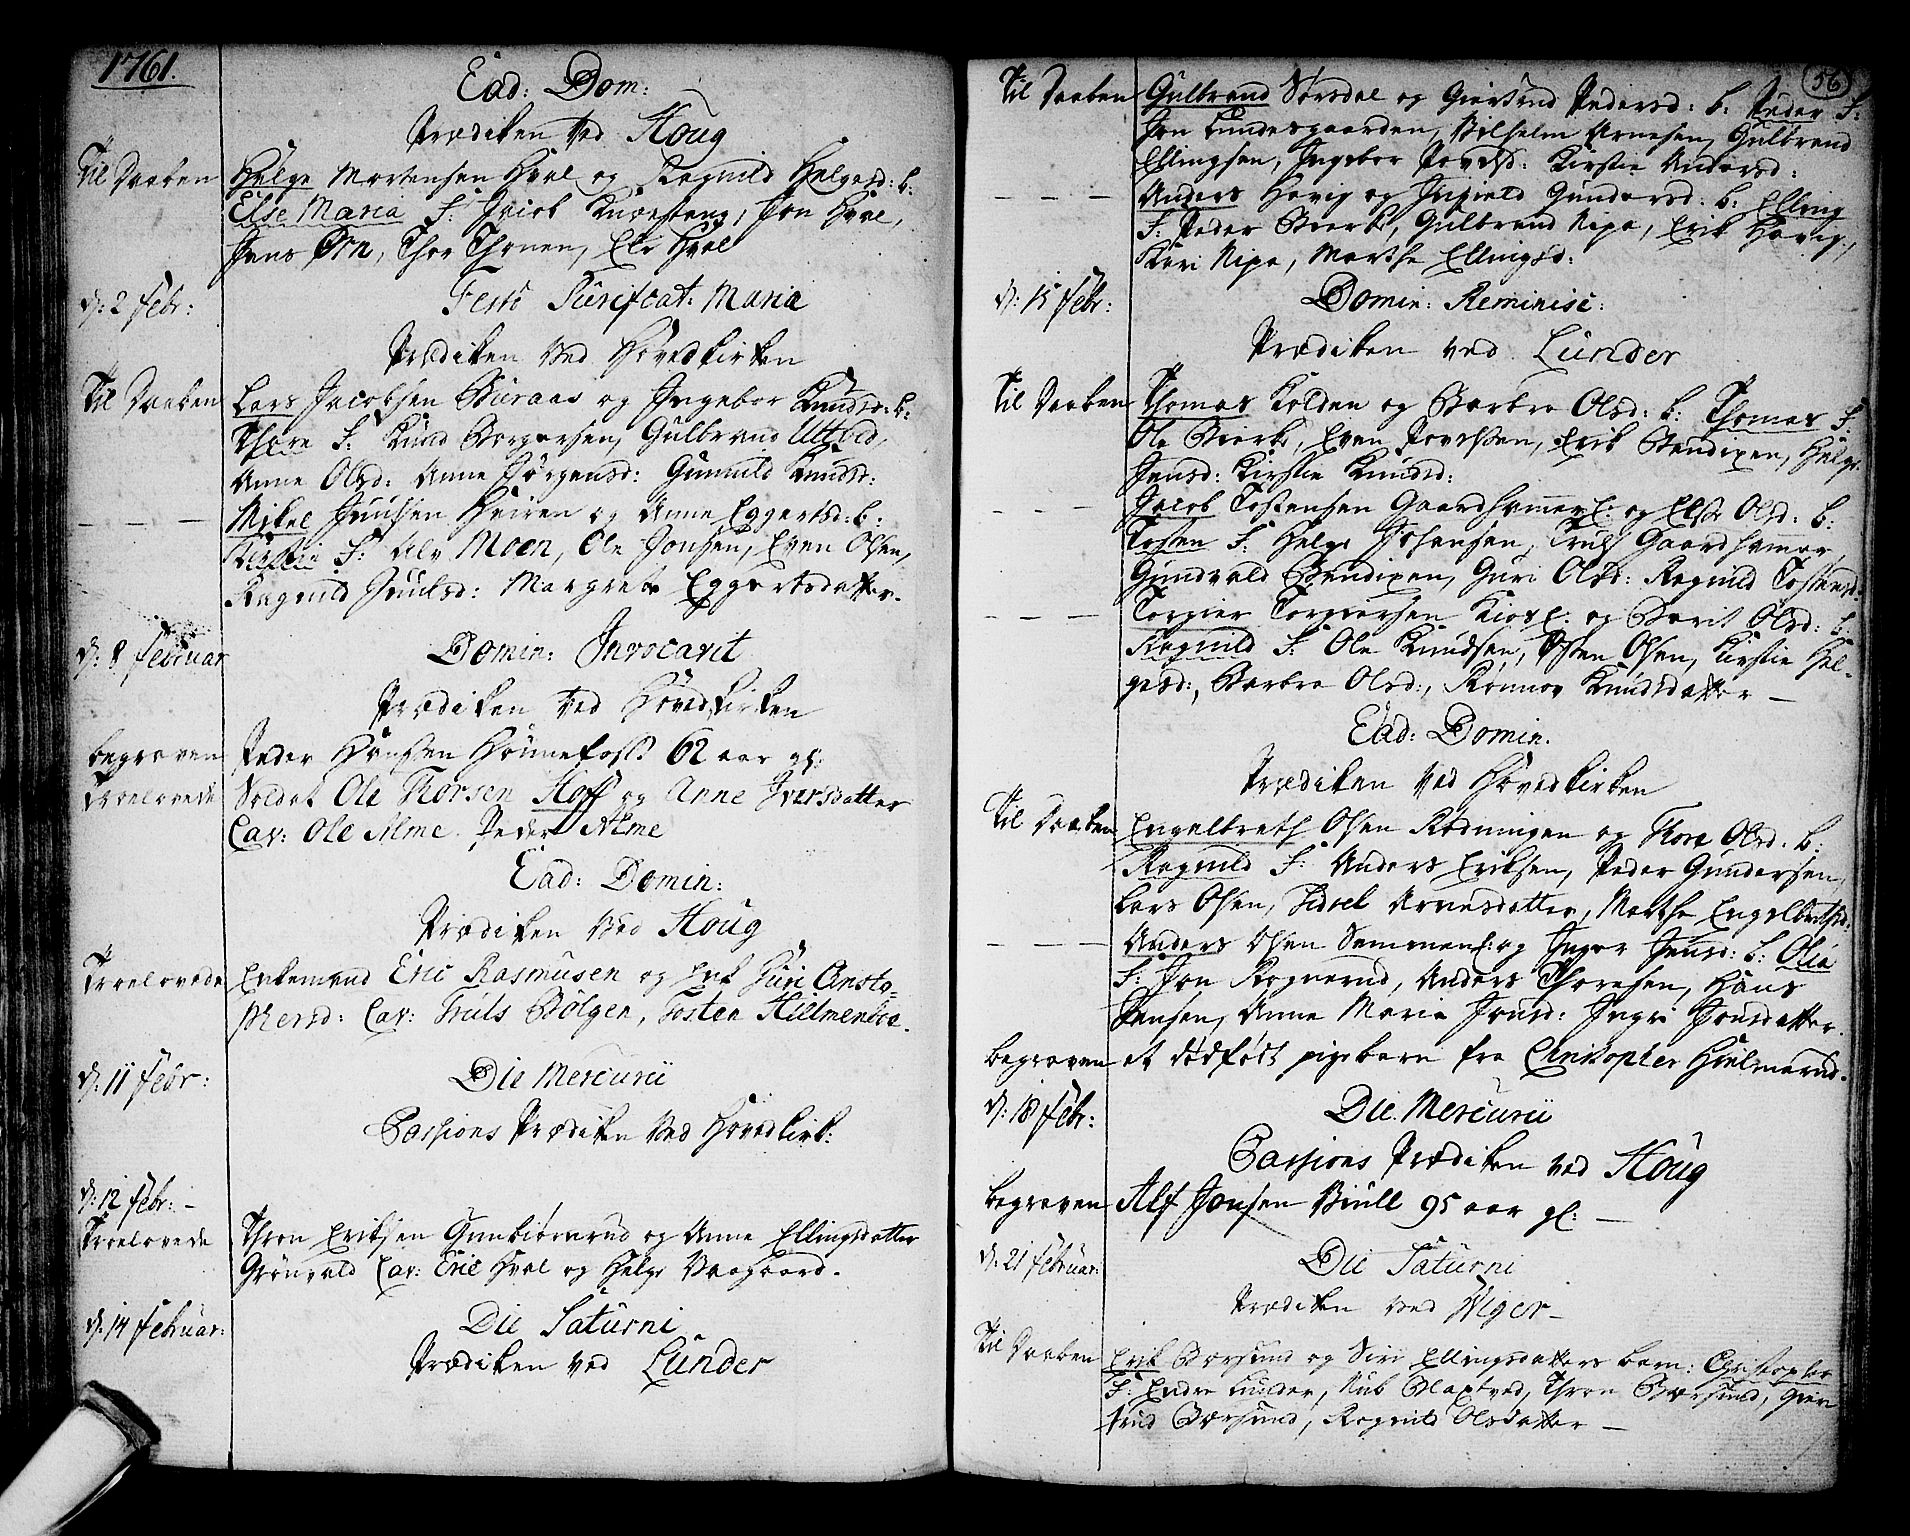 1761.
Ead: Dom:
Prædiken ved Houg
Til Daaben Helge Mortensen Hval og Ragnild Helgesd: b:
Else Maria F: Jacob Knestang, Jon Hval,
Jens Ørn, Thor Thonen, Els Hval
d: 2 Febr: Festo Purificat: Maria
Prædiken ved Hovedkirken
Til Daaben Lars Jacobsen Buraas og Ingebor Knudsd: b:
Thore F: Knud Borgersen, Gulbrand Ultved,
Anne Olsd: Anne Jørgensd: Gunnild Knudsd:
— — — Mikel Juulsen Heiren og Anne Eggertsd: b:
Kirstie F: Alv Moen, Ole Jonsen, Even Olsen,
Ragnild Juulsd: Margrete Eggertsdatter.
d: 8 Februar Domin: Invocavit
Prædiken ved Hovedkirken
begraven Peder Hansen Hönnefoss 62 aar gl:
Troelovede Soldat Ole Thorsen Hoff og Anne Iversdatter
Cav: Ole Alme. Peder Alme
Ead: Domin:
Prædiken ved Houg
Troelovede Enkemand Eric Rasmusen og Enk Guri Christo=
phersd: Cav: Truls Bölgen, Tosten Hillmenbre.
d: 11 Febr: Die Mercurii
Passions Prædiken ved Hovedkirk:
d: 12 Febr: —
Troelovede Thron Eriksen Gunbiørnrud og Anne Ellingsdatter
Grönvold Cav: Eric Hval og Helge Vaagaard.
d: 14 Februar: Die Saturni
Prædiken ved Lunder
56
Til Daaben Gulbrand Størsdal og Giertrud Pedersd: b: Peder F:
Jon Lundesgaarden, Vilhelm Arnesen, Gulbrand
Ellingsen, Ingebor Povelsd: Kirstie Andersd:
— — — Anders Hovig og Ingield Gundersd: b: Elling
F: Peder Bierke, Gulbrand Ripe, Erik Hovig,
Kari Ripe, Marthe Ellingsd:
d: 15 Febr: Domin: Reminisc:
Prædiken ved Lunder
Til Daaben Thomas Kolden og Barbro Olsd: b: Thomas F:
Ole Bierke, Even Povelsen, Erik Bendixen, Helge
Jensd: Kirstie Knudsd:
— — — Jacob Tostensen Gaardhammer E: og Else Olsd: b:
Tosten F: Helge Johansen, Truls Gaardhamar,
Gundvald Bendixen, Guri Olsd: Ragnild Tostensd:
— — — Torgier Torgersen Kios E: og Berit Olsd: b:
Ragnild F: Ole Knudsen, Østen Olsen, Kirstie Hel-
gesd:, Barbro Olsd:, Rønnov Knudsdatter —
Ead: Domin.
Prædiken ved Hovedkirken
Til Daaben Engelbreth Olsen Rødningen og Thore Olsd. b:
Ragnild F: Anders Eriksen, Peder Gundersen,
Lars Olsen, Sidsel Arnesdatter, Marthe Engelbrethsd:
— — — Anders Olsen Semmen E: og Inger Jensd: b: Olia
F: Jon Rognerud, Anders Thoresen, Hans
Jensen, Anne Maria Jonsd: Ingri Jonsdatter.
begraven et dødfødt pigebarn fra Christopher Hielmerud.
d: 18 Febr: Die Mercurii
Passions Prædiken ved Houg
begraven Alf Jonsen Biull 95 aar gl: —
d: 21 Februar: Die Saturni
Prædiken ved Viger —
Til Daaben Erik Børsund og Siri Ellingsdatters barn: Christopher
F: Endre Lunder, Nub Blaxtved, Thron Børsund, Gier
trud Børsund, Ragnild Olsdatter —